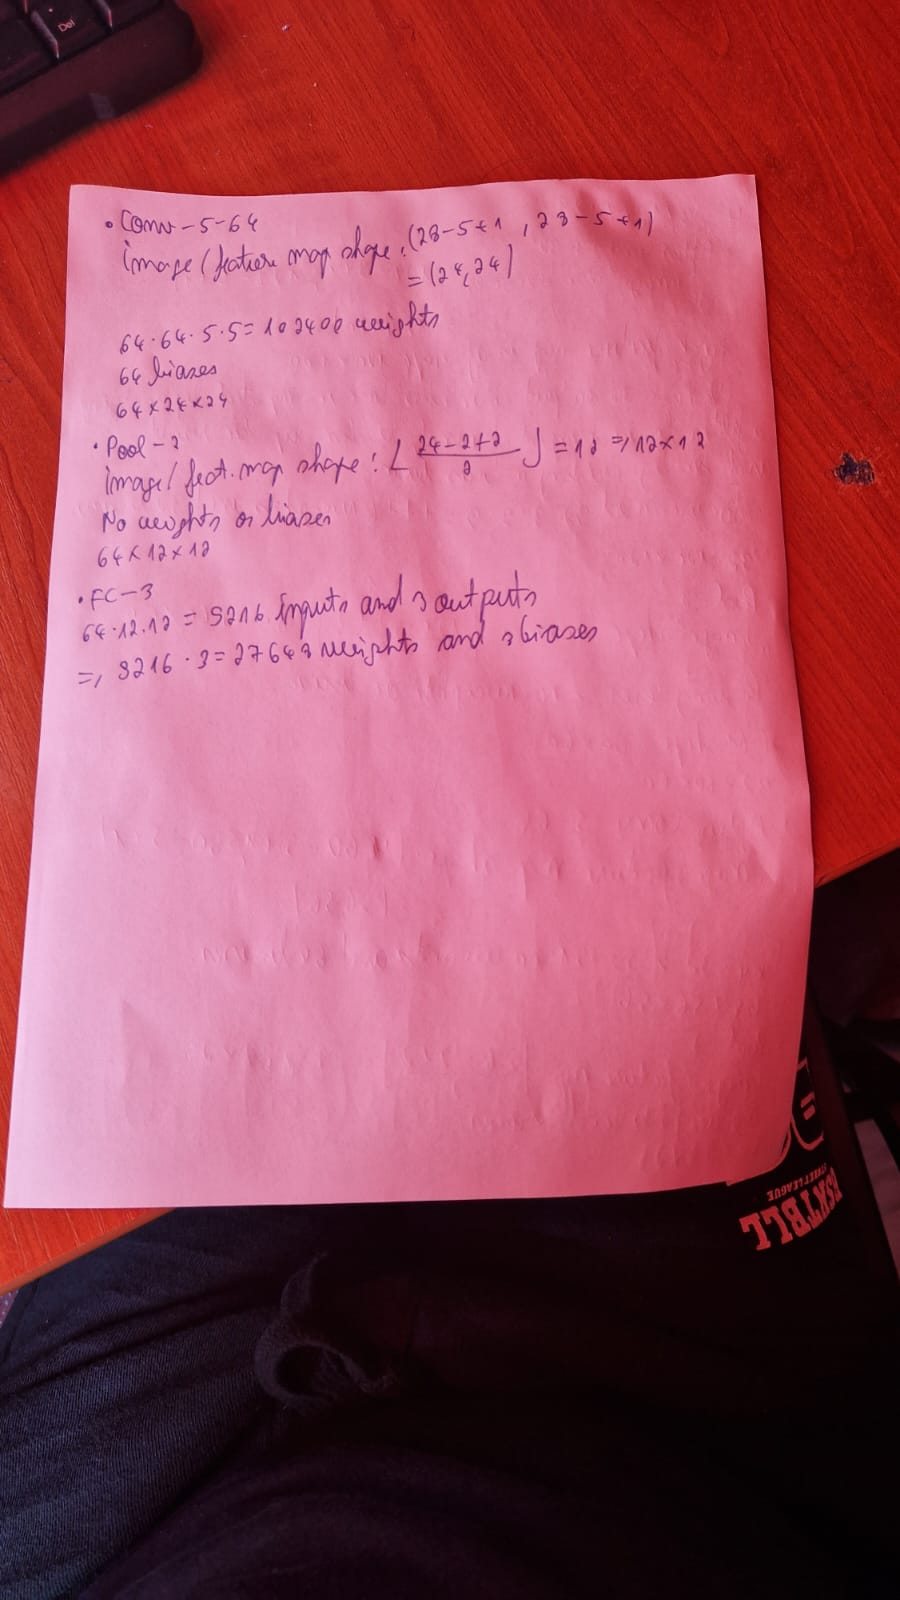 Del
• Conv-5-64
image/feature map shape: (28-5+1, 28-5+1)
= (24,24)
64·64·5·5 = 102400 weights
64 biases
64×24×24
• Pool-2
image/feat. map shape: ⌊ (24-2+2)/2 ⌋ = 12 => 12×12
No weights or biases
64×12×12
• FC-3
64·12·12 = 9216 inputs and 3 outputs
=> 9216·3 = 27648 weights and 3 biases
LEAGUE